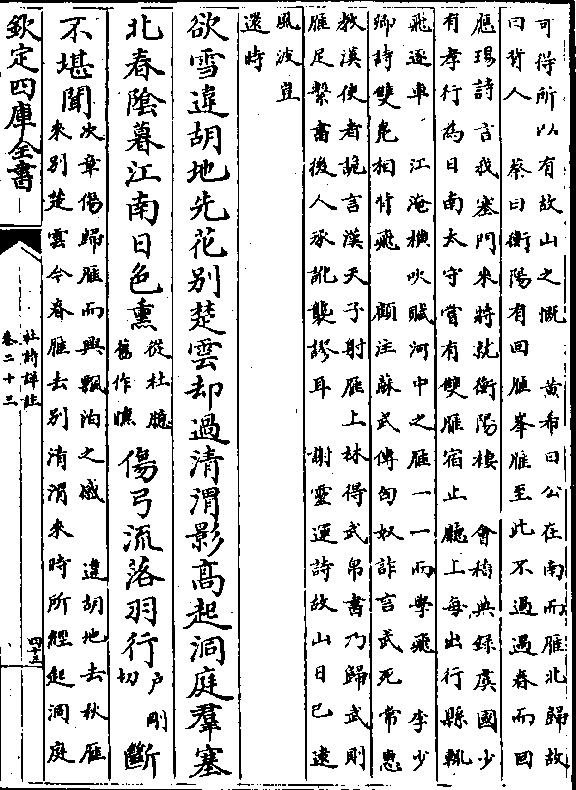 可得所以有故山之慨　黄希曰公在南而雁北歸故
曰背人　蔡曰衡陽有回雁峯雁至此不過過春而回
應瑒詩言我塞門来將就衡陽棲　會稽典録虞國少
有孝行為日南太守嘗有雙雁宿止廳上每出行縣輒
飛逐車　江淹横吹賦河中之雁一一而學飛　李少
卿詩雙鳬相背飛　顧注蘇武傳匈奴詐言武死常惠
教漢使者詭言漢天子射雁上林得武帛書乃歸武則
雁足繫書後人承訛襲謬耳　謝靈運詩故山日已遠
風波豈
還時
欲雪違胡地先花別楚雲却過清渭影髙起洞庭羣塞
北春陰暮江南日色熏
從杜臆
舊作曛
傷弓流落羽行
户剛
切
斷
不堪聞
次章傷歸雁而興飄泊之感　違胡地去秋雁
来別楚雲今春雁去別清渭来時所經起洞庭
欽定四庫全書
杜詩詳註
卷二十三
四十三